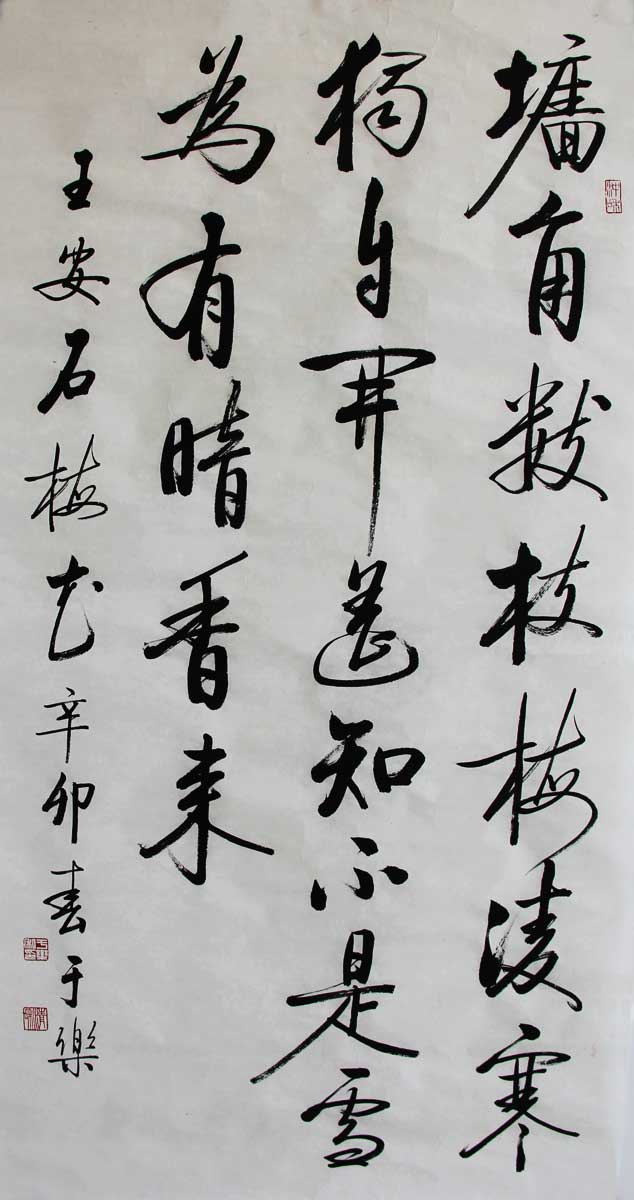 墙角数枝梅凌寒
獨自開遥知不是雪
為有暗香来
王安石梅花辛卯春于樂